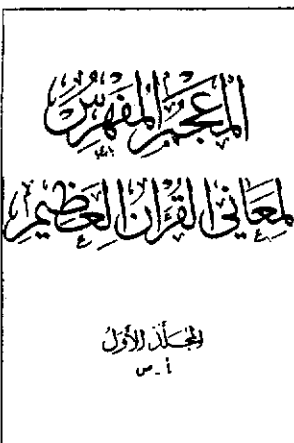 المعجم المفهرس
لمعاني القرآن العظيم
المجلد الأول
أ - ص